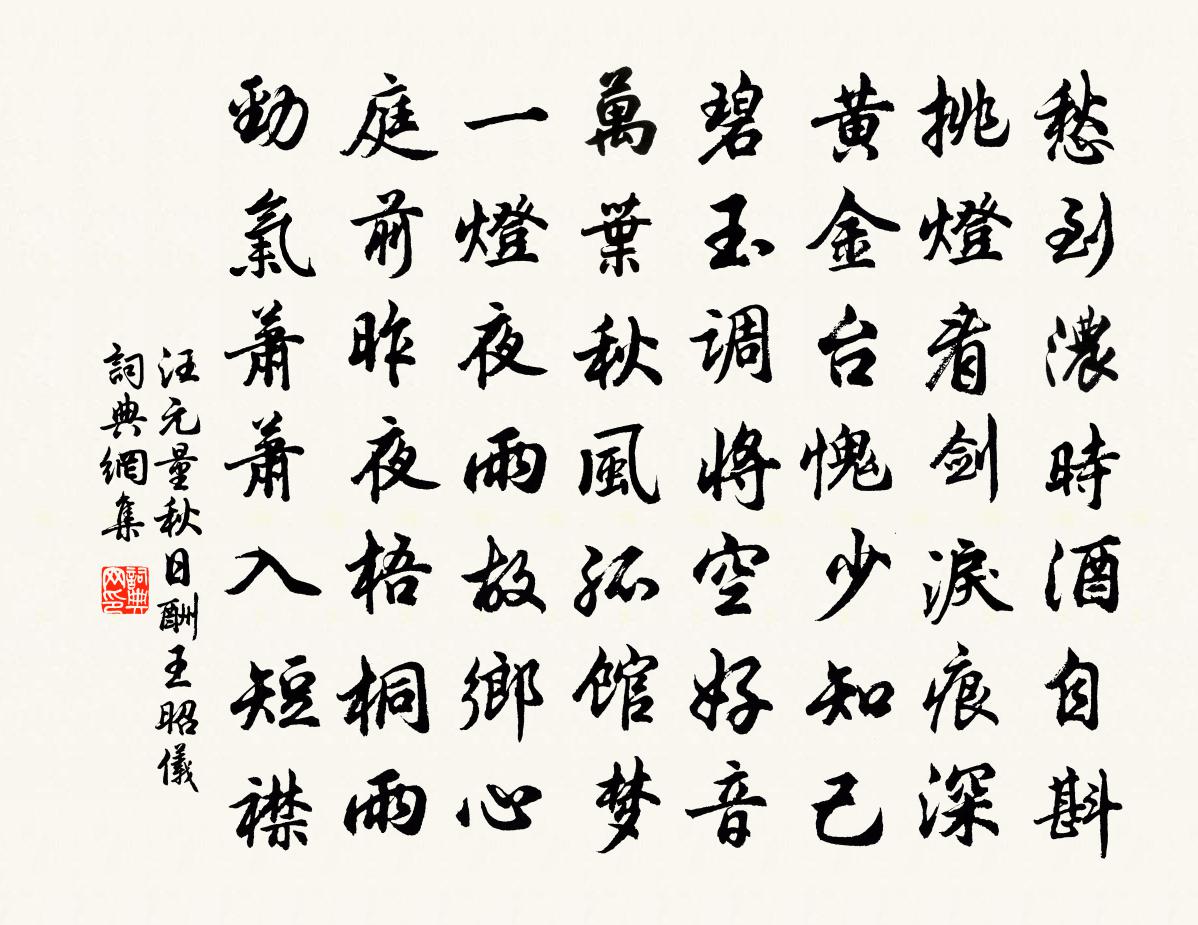 愁到濃時酒自斟
挑燈看劍淚痕深
黃金台愧少知己
碧玉調將空好音
萬葉秋風孤館梦
一燈夜雨故鄉心
庭前昨夜梧桐雨
勁氣蕭蕭入短襟
汪元量秋日酬王昭儀
詞典網集
詞典网印